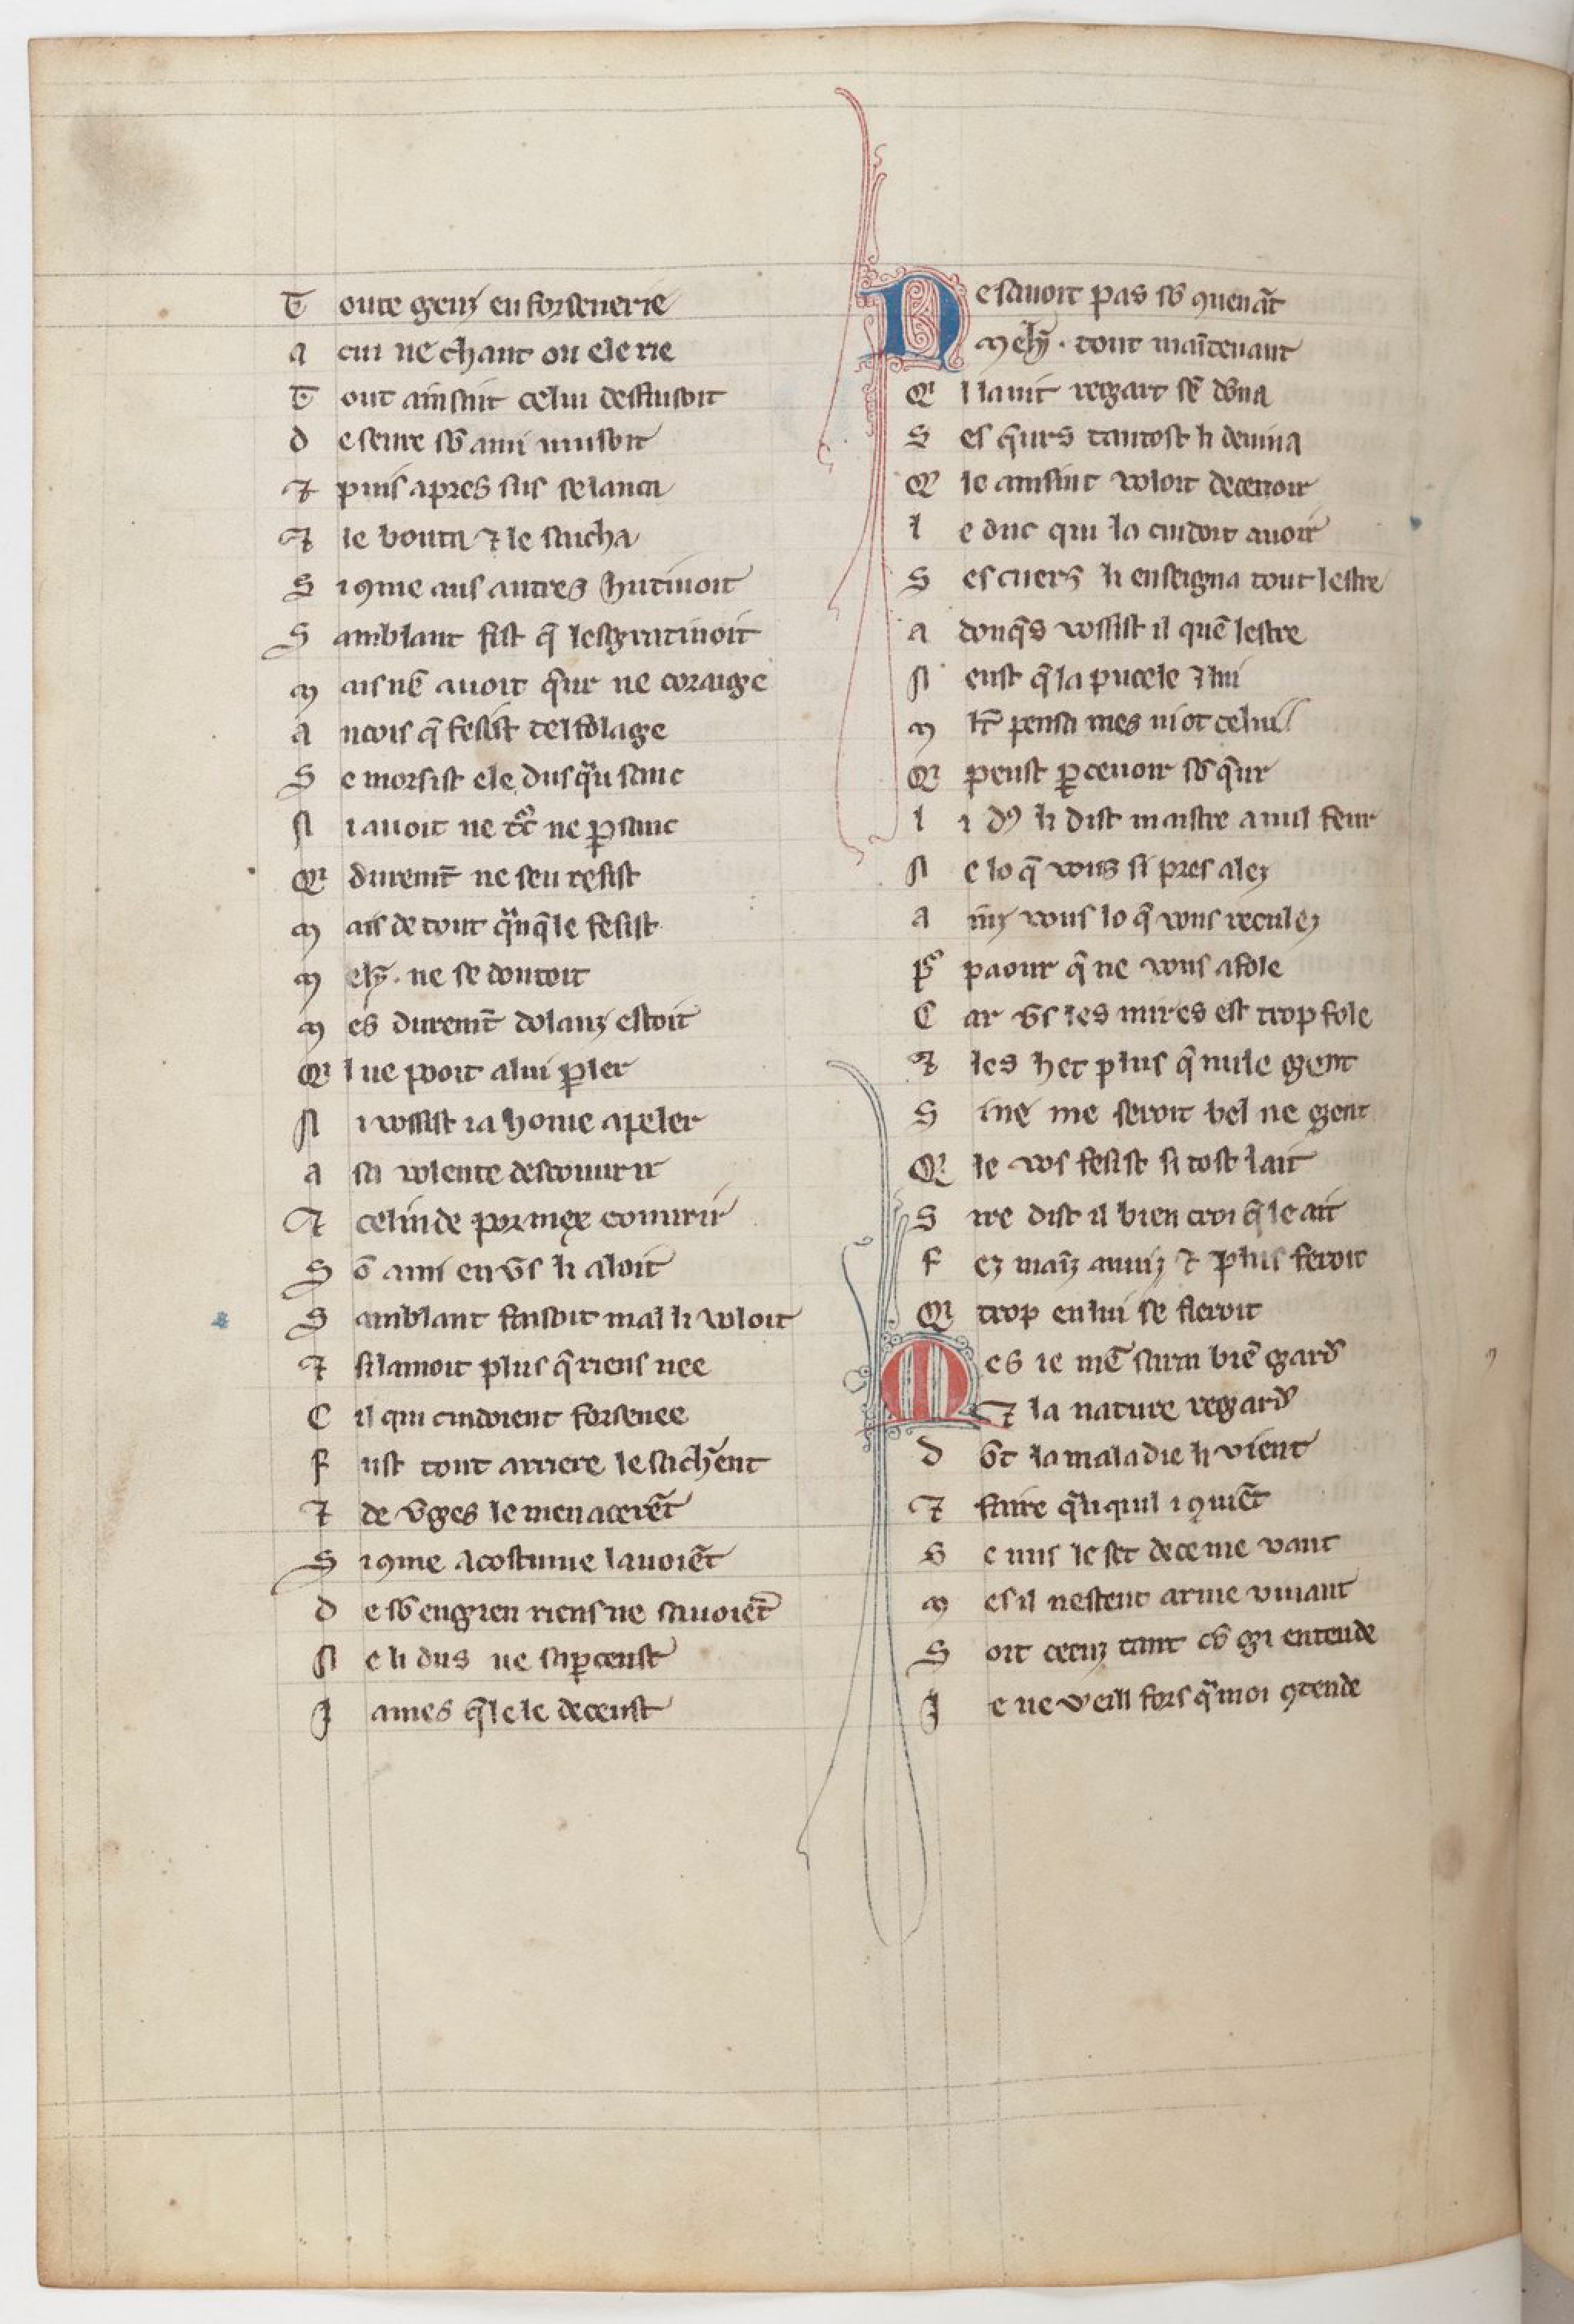 Toute genz en forsenerie
a cui ne chant ou ele rie
Tout ainsint celui desfiusoit
d eseure sō ami musoit
⁊ puis apres sus se lanca
⁊ le bouta ⁊ le sacha
S i 9me aus autres hutinoit
S amblant fist q̄ lesgratinoit
m ais nē auoit q̄ur ne coraige
a ncois q̄ fesist tel folage
S e morsist ele dusqͣu sanc
N i auoit ne tͦc ne ꝑ sanc
Qͥ duremt̄ ne sen resist
m ais de tout qͣnq̄le fesist
m elỹ. ne se doutoit
m es duremt̄ dolanz estoit
Qͥ l ne pooit a lui ꝑler
N i vossist ia home apeler
a sa volente descouurir
⁊ celui de pormex couurir
S ō ami en ṽs li aloit
S amblant faisoit mal li voloit
⁊ si lamoit plus q̄ riens nee
C il qui cuidoient forsenee
F ust tout arriere le sachēnt
⁊ de ṽges le menacerēt
S i 9me acostume lauoiēt
d e sō engien riens ne sauoiēt
N e li dus ne saꝑceust
J ames q̄le le deceust
Ne sauoit pas sō 9uenāt
melỹ. tout maītenant
Qͥ l lauit regart sē dōna
S es q̄urs tantost li deuina
Qͥ le ainsint voloit deceuoir
l e duc qui la cuidoit auoir
S es cuers li enseigna tout lestre
a donq̄s vossist il quē lestre
N eust q̄ la pucele ⁊ lui
m lt̄ pensa mes ni ot celui
Qͥ peust ꝑceuoir sō q̄ur
l i d9 li dist maistre a nul feur
N e lo q̄ vous si pres alez
a inz vous lo q̄ vous reculez
pͦ paour q̄ ne vous afole
C ar ṽs les mires est trop fole
⁊ les het plus q̄ nule gent
S i ne me seroit bel ne gent
Qͥ le vos fesist si tost lait
S ire dist il bien croi q̄le ait
F ez maīz anuiz ⁊ plus feroit
Qͥ trop en lui se fieroit
Mes ie mē saura biē gard̾
⁊ la nature regard̾
d ōt la maladie li vient
⁊ faire qͣnquil i 9uiēt
S e nus le set de ce me vant
m es il nestent arme viuant
S oit ceenz tant cō gi entende
J e ne veill fors qͣ moi 9tende